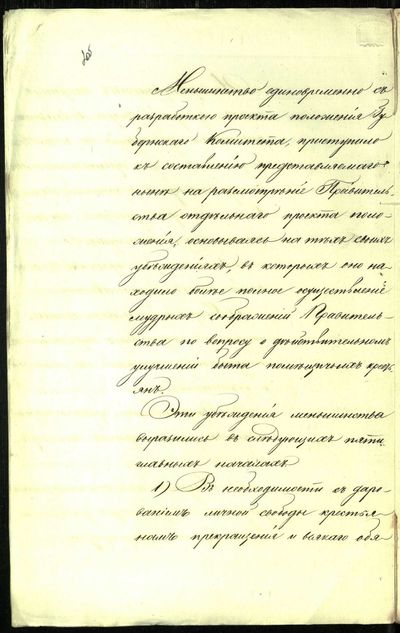 Меньшинство одновременно съ
разработкою проекта положенія Гу-
бернскаго Комитета, приступило
къ составленію представляемаго
нынѣ на разсмотрѣніе Правитель-
ства отдѣльнаго проекта поло-
женія, основываясь на тѣхъ своихъ
убѣжденіяхъ, въ которыхъ оно на-
ходило болѣе полное осуществленіе
мудрыхъ соображеній Правитель-
ства по вопросу о дѣйствительномъ
улучшеніи быта помѣщичьихъ кресть-
янъ.
Эти убѣжденія меньшинства
выразились въ слѣдующихъ пяти
главныхъ началахъ
1) Въ необходимости съ даро-
ваніемъ личной свободы крестья-
намъ прекращенія и всякаго обя-